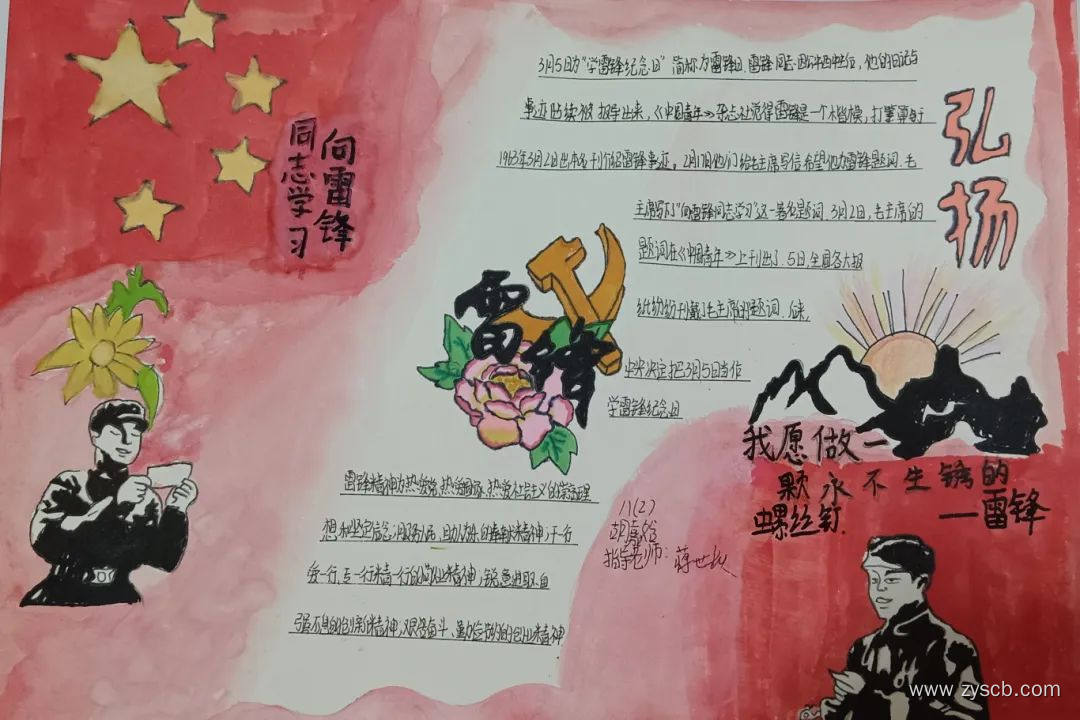 向雷锋
同志学习
3月5日为“学雷锋纪念日”简称为雷锋日,雷锋同志因公牺牲后,他的日记与
事迹陆续被报导出来,《中国青年》杂志社觉得雷锋是一个楷模,打算
1963年3月2日出本名刊介绍雷锋事迹,2月17日他们给毛主席写信希望他为雷锋题词.毛
主席写下“向雷锋同志学习”这一著名题词,3月2日,毛主席的
题词在《中国青年》上刊出了.5日,全国各大报
纸纷纷刊载了毛主席的题词.后来,
中央决定把3月5日当作
学雷锋纪念日
弘扬
雷锋
我愿做一
颗永不生锈的
螺丝钉.
一雷锋
雷锋精神为热爱党,热爱国家,热爱社会主义的崇高理
想和坚定信念;服务人民,助人为乐的奉献精神;干一行
爱一行,专一行精一行的敬业精神;锐意进取、自
强不息的创新精神,艰苦奋斗,勤俭节约的创业精神
八(2)
指导老师:蒋世
www.zyscb.com